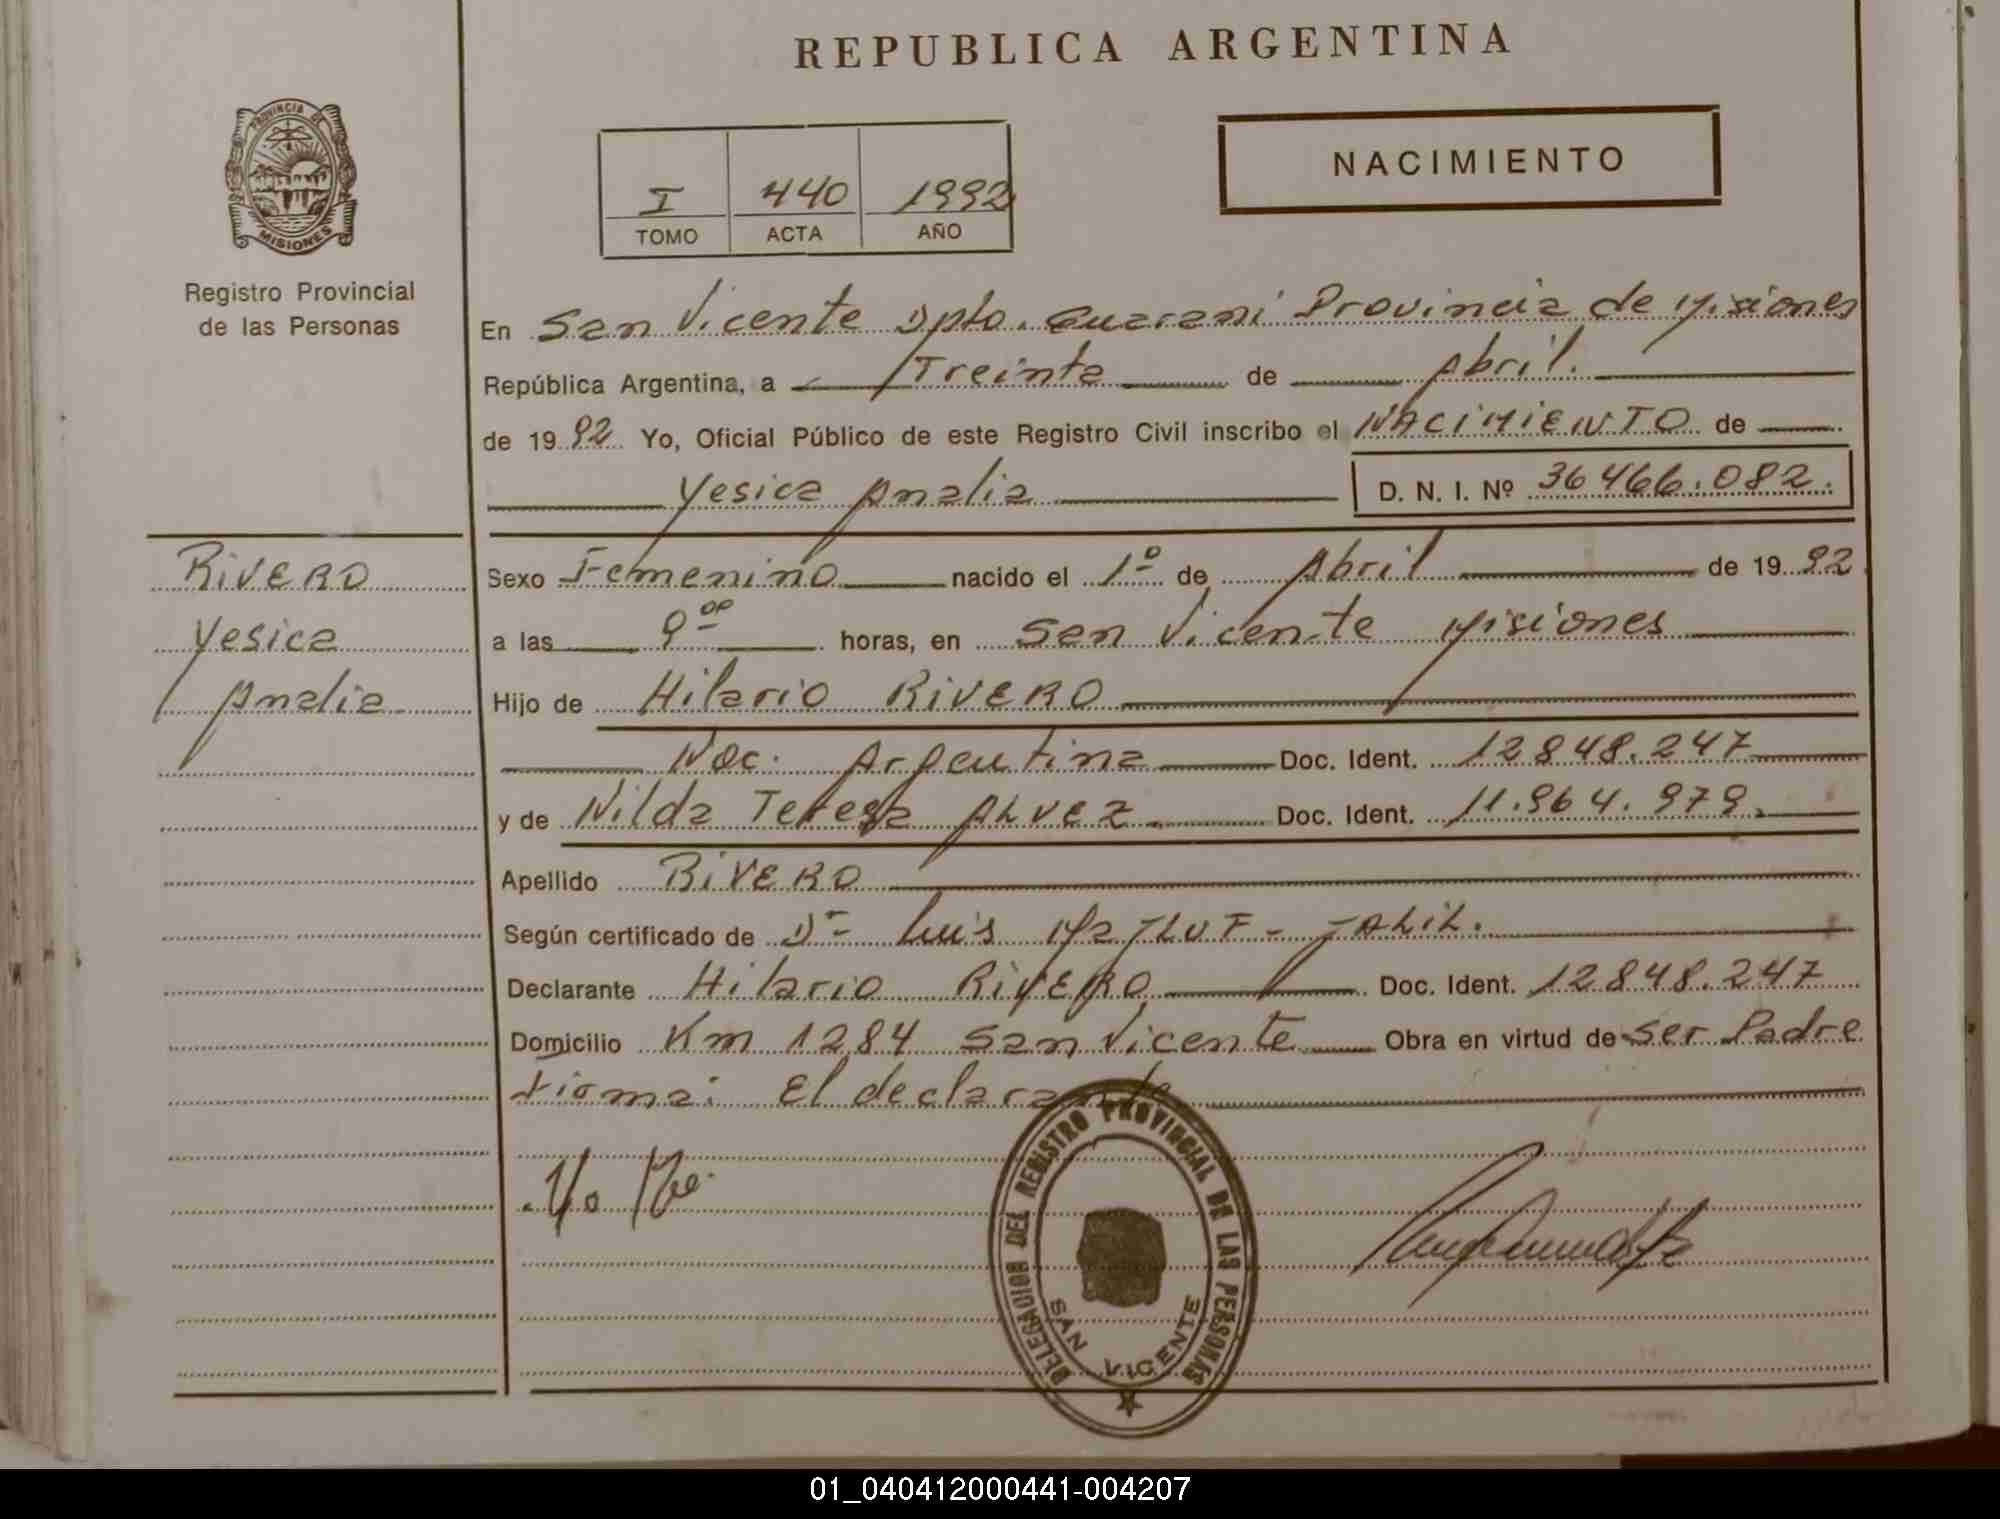 REPUBLICA ARGENTINA
PROVINCIA DE
MISIONES
Registro Provincial
de las Personas
I 440 1992
TOMO ACTA AÑO
NACIMIENTO
En San Vicente Dpto. Guarani Provincia de Misiones
República Argentina, a Treinta de Abril.
de 1992 Yo, Oficial Público de este Registro Civil inscribo el NACIMIENTO de
Yesica Analia D. N. I. Nº 36466.082.
RIVERO
Yesica
Analia
Sexo Femenino nacido el 1º de Abril de 1992
a las 9 horas, en San Vicente Misiones
Hijo de Hilario RIVERO
Nac. Argentina Doc. Ident. 12848.247
y de Nilda Teresa ALVEZ. Doc. Ident. 11.964.979.
Apellido RIVERO
Según certificado de Dr Luis
Declarante Hilario RIVERO Doc. Ident. 12848.247
Domicilio Km 1284 San Vicente Obra en virtud de ser Padre
Firma: El declarante
DELEGACION DEL REGISTRO PROVINCIAL DE LAS PERSONAS
SAN VICENTE
01_040412000441-004207